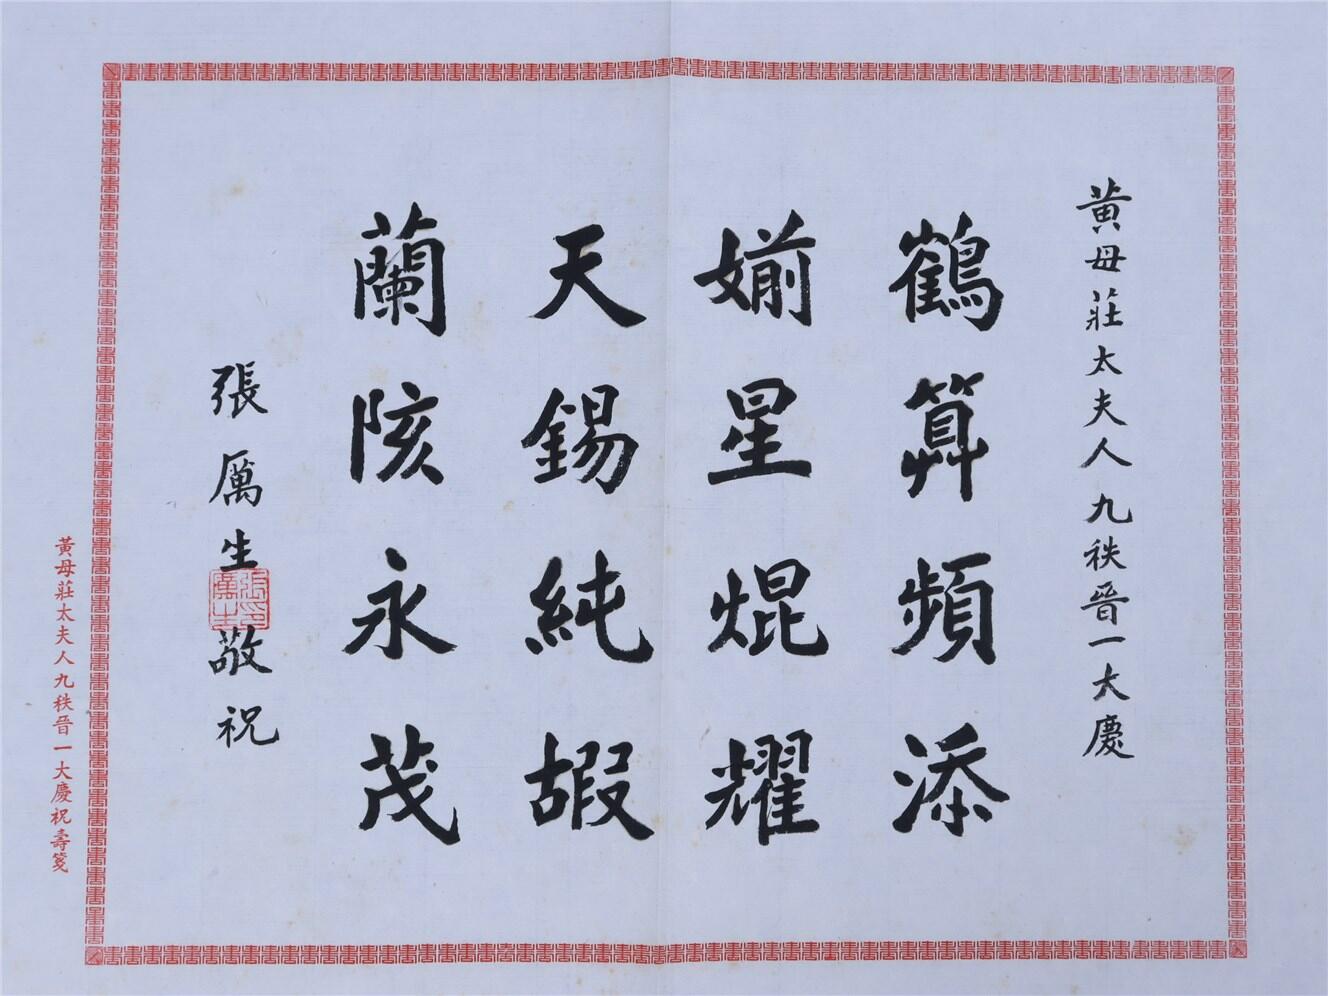 黃母莊太夫人九秩晉一大慶
鶴算頻添
婺星焜耀
天錫純嘏
蘭陔永茂
張厲生敬祝
張厲生印
黃母莊太夫人九秩晉一大慶祝壽箋